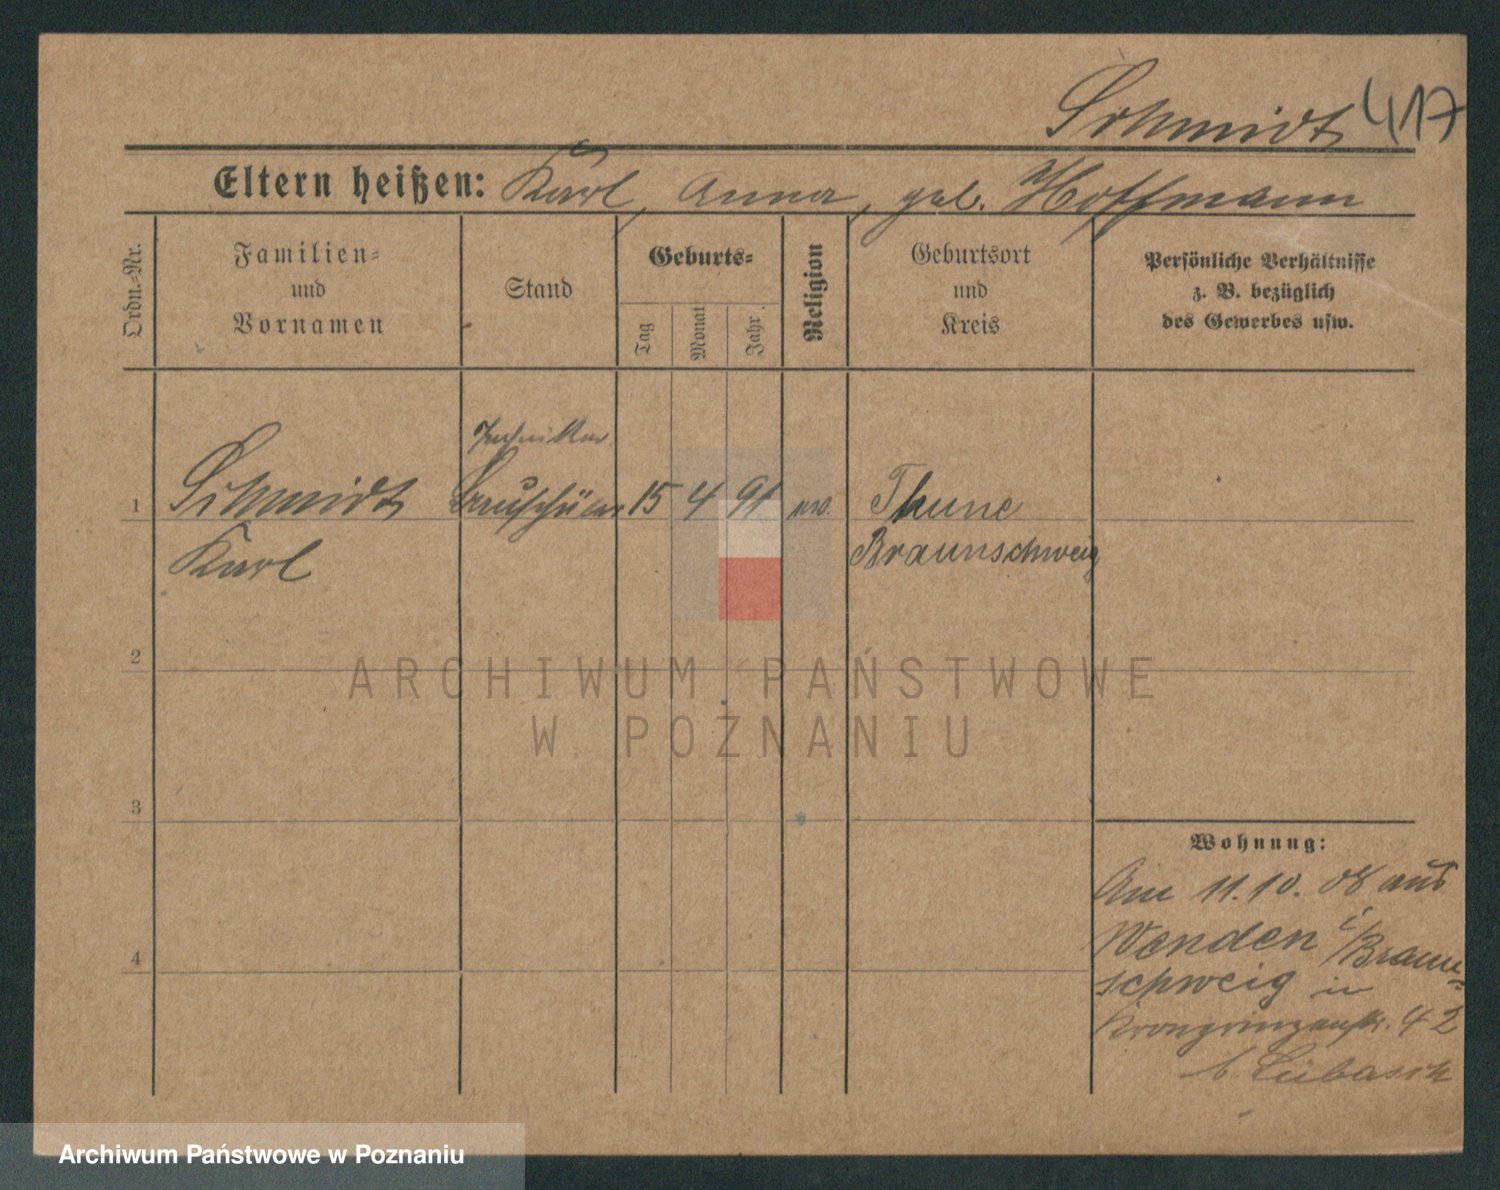 Schmidt 417
Eltern heißen: Karl, Anna, geb. Hoffmann
Ordn.-Nr.
Familien-
und
Vornamen
Stand
Geburts-
Tag
Monat
Jahr
Religion
Geburtsort
und
Kreis
Persönliche Verhältnisse
z. B. bezüglich
des Gewerbes usw.
Techniker
1 Schmidt 15 4 91 Thune
Karl Braunschweig
2
3
4
Wohnung:
Am 11.10.08 aus
Wenden i/Braun-
schweig in
Kronprinzenstr. 42
b. Lubasch
ARCHIWUM PAŃSTWOWE
W POZNANIU
Archiwum Państwowe w Poznaniu